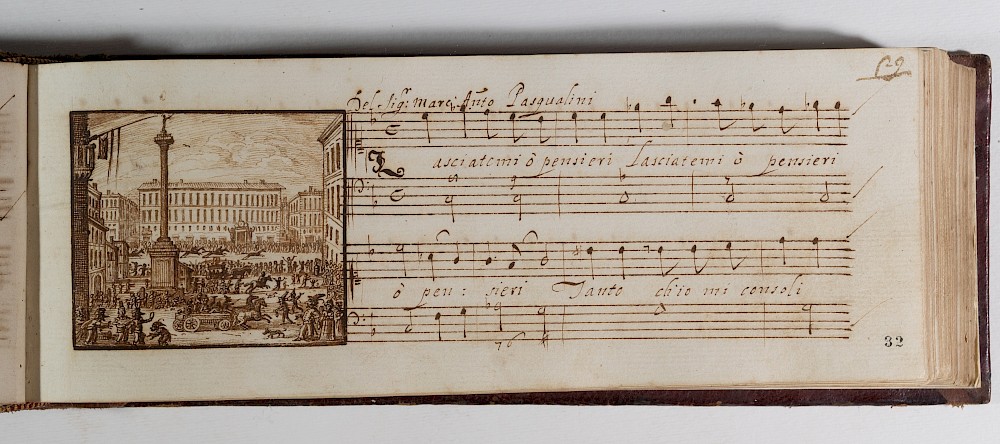 Del Sig.r Marc: Ant.o Pasqualini
Lasciatemi ò pensieri Lasciatemi ò pensieri
ò pen: sieri Tanto ch'io mi consoli
7 6
32